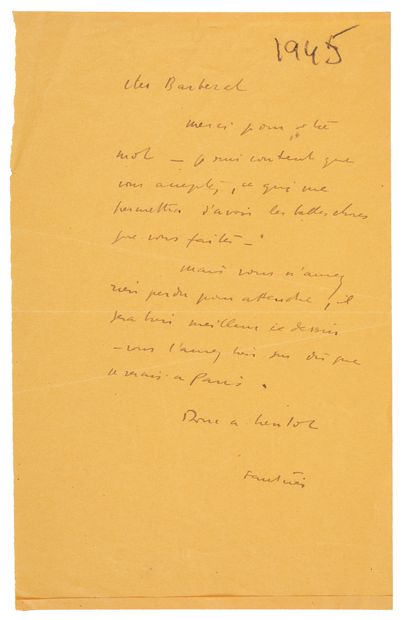 1945
cher Barbezat
merci pour votre
mot — je suis content que
vous acceptez, ce qui me
permettra d'avoir les belles choses
que vous faites —
mais vous n'aurez
rien perdu pour attendre, il
sera bien meilleur ce dessin
— vous l'aurez dès que
je serais a Paris.
Donc a bientot
Fautrier